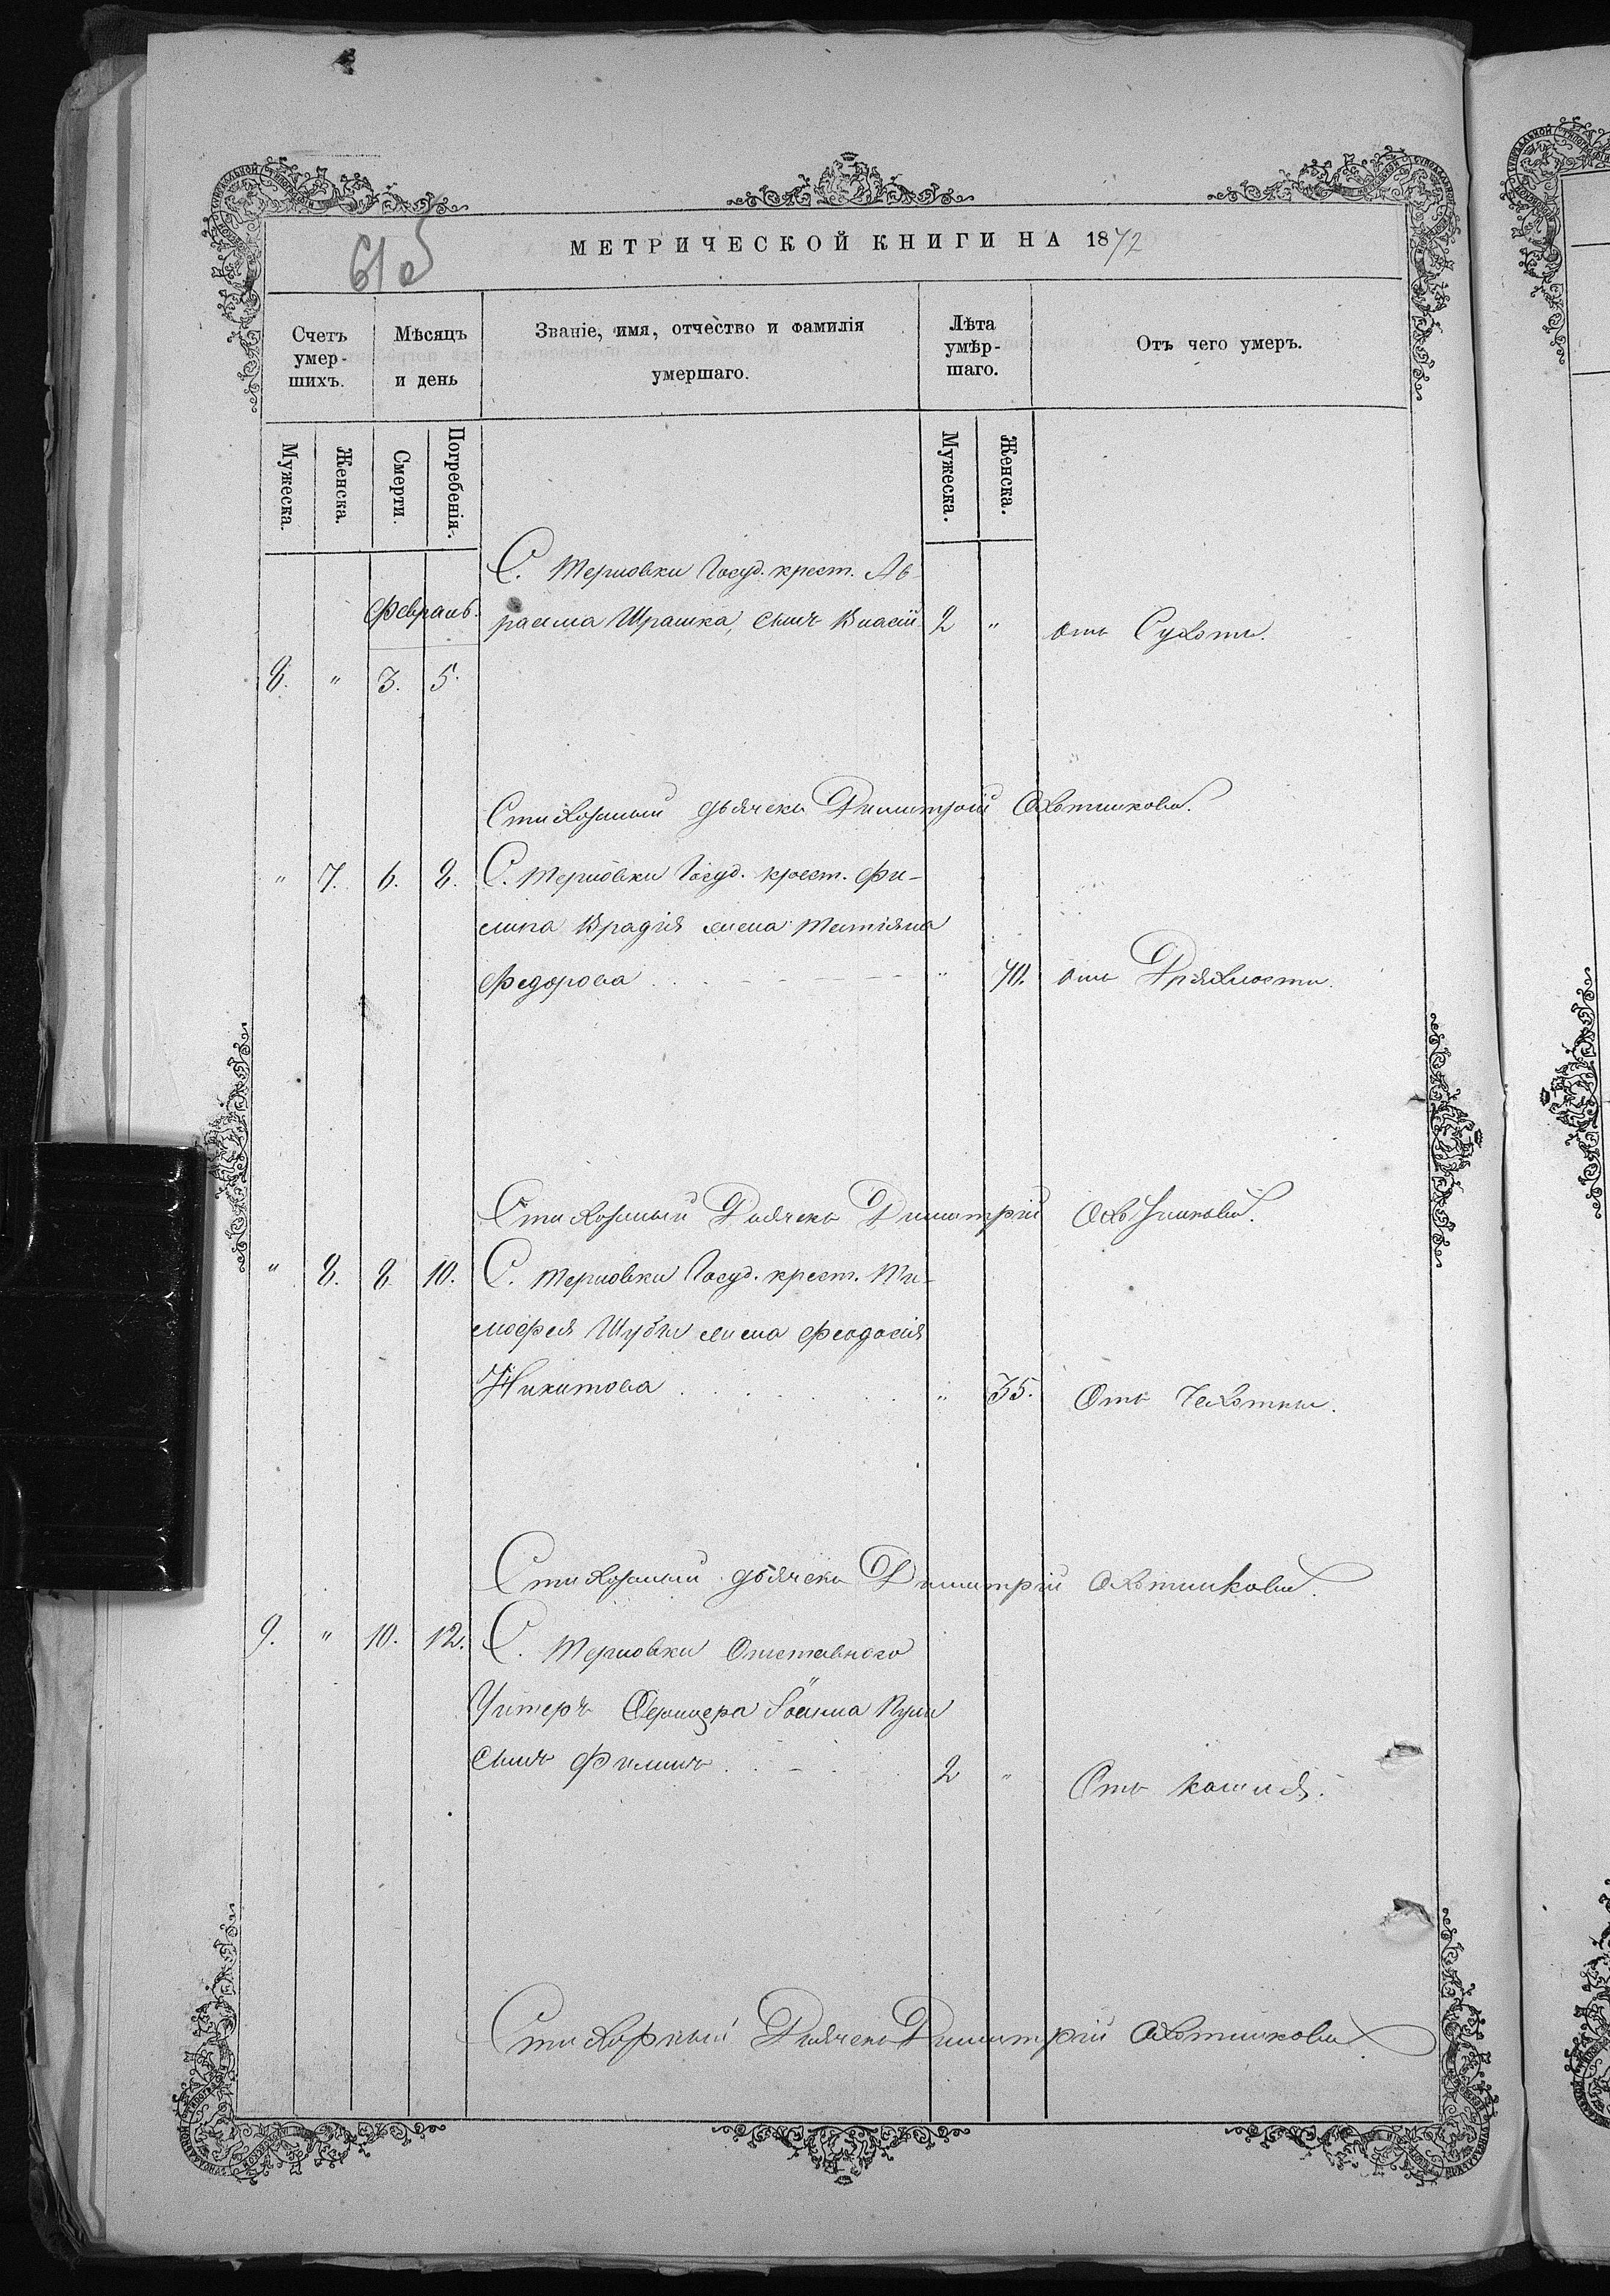 61об
МЕТРИЧЕСКОЙ КНИГИ НА 1872
Счетъ умер-шихъ.
Мѣсяцъ и день
Званіе, имя, отчество и фамилія умершаго.
Лѣта умѣр-шаго.
Отъ чего умеръ.
Мужеска.
Женска.
Смерти.
Погребенія.
Мужеска.
Женска.
С. Терновки Госуд. крест. Ав-
Февраль.
раама Шрашка, сынъ Власій 2 " отъ Сухоты.
8. " 3. 5.
Стихарный дьячекъ Димитрій Охотниковъ.
" 7. 6. 8. С. Терновки Госуд. крест. Фи-
липа Врадія жена Татіяна
Федорова " 70. отъ Дряхлости.
Стихарный Дьячекъ Димитрій Охотниковъ.
" 8. 8 10. С. Терновки Госуд. крест. Ти-
мофея Шубы жена Феодосія
Никитова " 35. Отъ Чахотки.
Стихарный дьячекъ Димитрій Охотниковъ.
9. " 10. 12. С. Терновки Отставного
Унтеръ Офицера Іоанна
сынъ Филипъ 2 " Отъ кашля.
Стихарный Дьячекъ Димитрій Охотниковъ